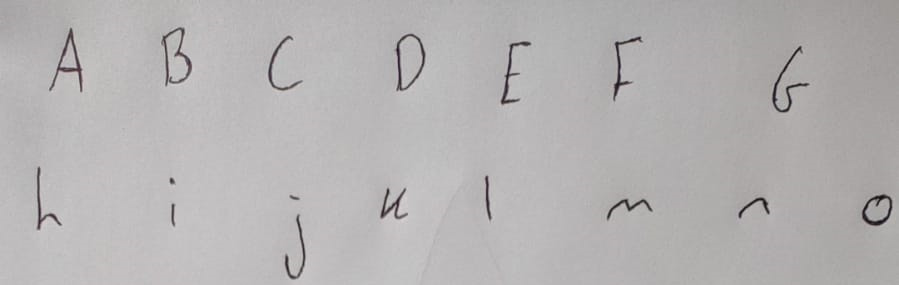 A B C D E F G
h i j k l m n o